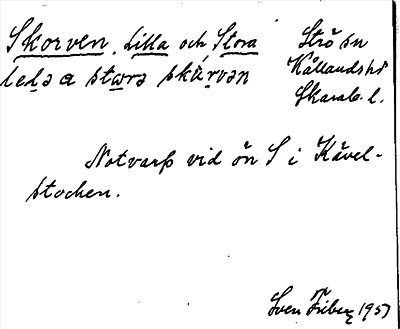 Skorven, Lilla och Stora
leḷa a stɷrə skúrvən
Strö sn
Kållands hd
Skarab. l.
Notvarp vid ön S i Kävel-
stocken.
Sven Friberg 1957